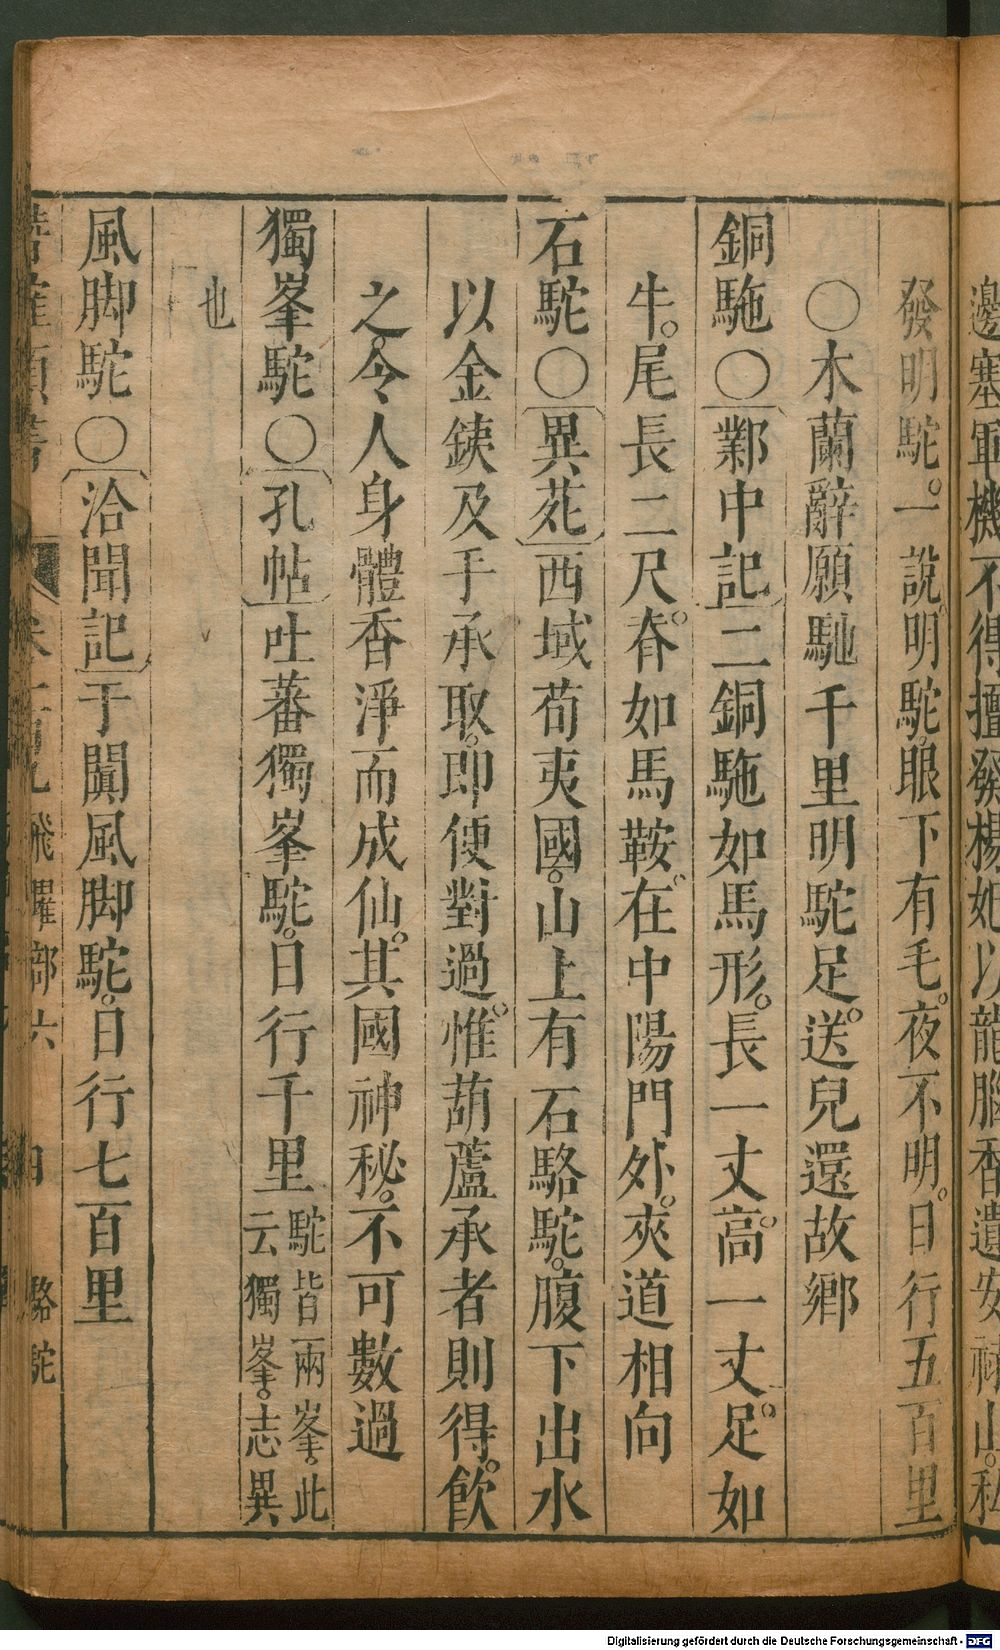 邊塞軍機不得擅發楊妃以龍腦香遺安祿山。私
發明駝。一說明駝眼下有毛。夜不明。日行五百里
○木蘭辭願馳千里明駝足。送兒還故鄉
銅駞○鄴中記二銅駞如馬形。長一丈。高一丈。足如
牛。尾長二尺。脊如馬鞍。在中陽門外。夾道相向
石駝○異苑西域苟夷國。山上有石駱駝。腹下出水
以金鋏及手承取。即便對過。惟葫蘆承者則得。飲
之。令人身體香淨而成仙。其國神秘。不可數過
獨峯駝○孔帖吐蕃獨峯駝。日行千里駝皆兩峯。此
云獨峯。志異
也
風脚駝○洽聞記于闐風脚駝。日行七百里
飛躍部六 四 駱駝
Digitalisierung gefördert durch die Deutsche Forschungsgemeinschaft - DFG